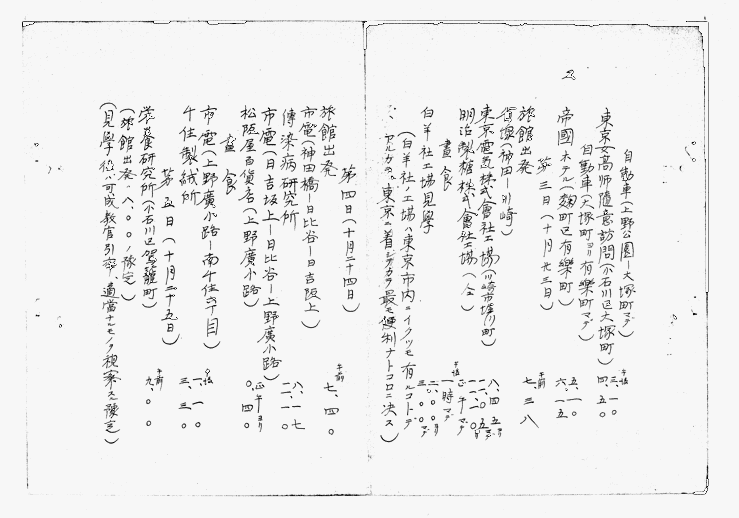 自動車(上野公園ー大塚町マデ) 午後 三、一〇
東京女高師随意訪問(小石川区大塚町) 四、五〇
自動車(大塚町ヨリ有樂町マデ) 五、一〇
帝國ホテル(麹町区有樂町) 六、一五
第三日(十月廿三日)
旅館出発 午前 七、三八
省線(神田ー川崎) 八、四五
東京電気株式會社工場(川崎市堀川町)
明治製糖株式會社工場(仝) 正午マデ
晝食 午後 一時マデ
白羊社工場見學
(白羊社ノ工場ハ東京市内ニイクツモ有ルコトデ
東京ニ着シテカラ最モ便利ナトコロニ決ス)
第四日(十月二十四日)
旅館出発 午前 七、四〇
市電(神田橋ー日比谷ー日吉坂上)
傳染病研究所
市電(日吉坂上ー日比谷ー上野廣小路)
松阪屋百貨店(上野廣小路) 正午ヨリ
晝食 〇、四〇
市電(上野廣小路ー南千住六丁目) 午後 一、一〇
千住製絨所 三、三〇
第五日(十月二十五日)
栄養研究所(小石川区駕籠町) 午前 九、〇〇
(旅館出発ハ八、〇〇ノ豫定)
(見學後ハ可成教官引率、適當ナルモノヲ視察スル豫定)